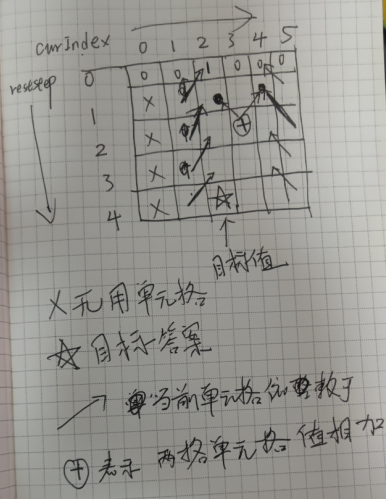 curIndex 0 1 2 3 4 5
0 0 0 1 0 0 0
reststep
X
1
X
2
X
3
X
4
目标值
X 无用单元格
目标答案
当前单元格依赖于
+ 表示 两格单元格 值相加